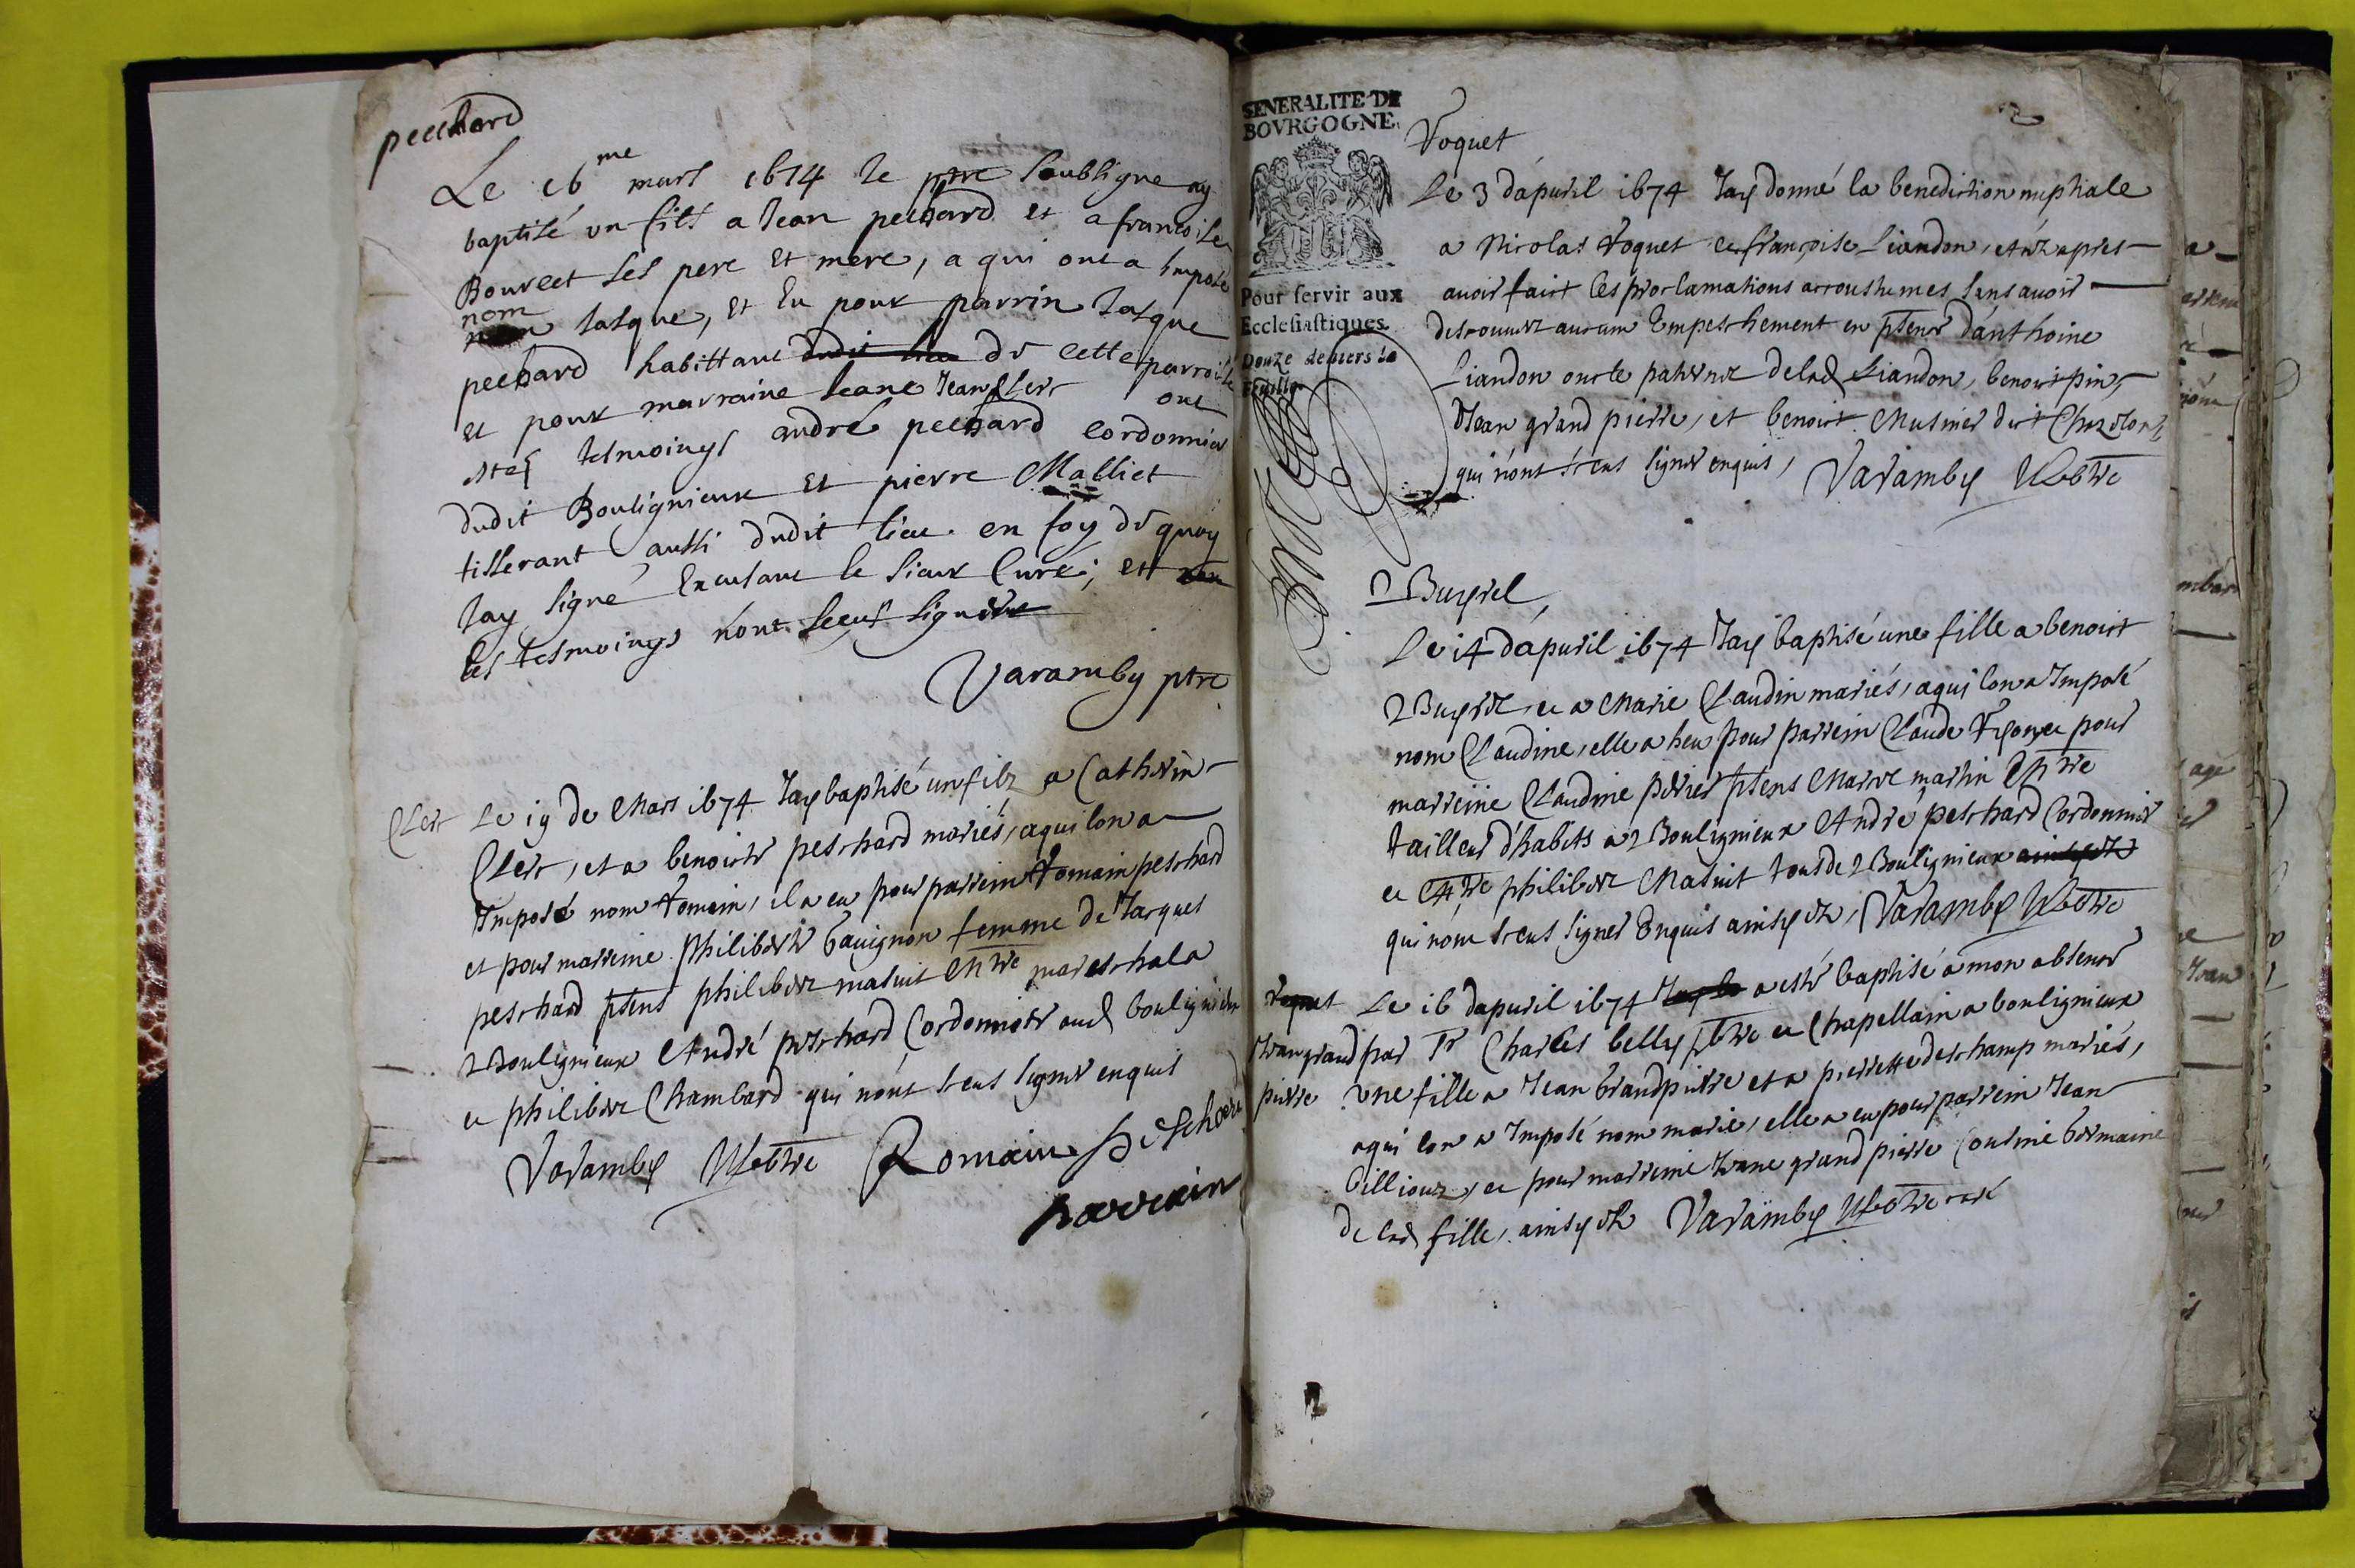 pecchard
Le 16me mars 1674 Je ptre soubsigne ay
baptisé un fils a Jean pecchard et a francoise
Bourcet ses pere et mere, a qui ont a Imposé
nom Jasque, et Eu pour parrin Jasque
pecchard habittant dudit lieu de cette parroisse
et pour marraine Jeane Jean Clerc ont
stes tesmoings andré pecchard cordonnier
dudit Boulignieux et pierre Malliet
tisserant aussi dudit lieu. en foy de quoy
Jay signé Excusant le sieur Curé; et
les tesmoings nont sceus signer
Varamby ptre
Clerc
Le 19 de Mars 1674 Jay baptisé un filz a Catherin
Clerc, et a benoiste peschard mariés, a qui lon a
Imposé nom Romain, il a eu pour parrein Romain peschard
et pour marreine philiberte Gavignon femme de Jacques
peschard ptens philibert masuit Mre mareschal a
Boulignieux André peschard Cordonnier aud boulignieux
et philibert Chambard qui nont sceus signer enquis
Varamby Romain peschard
parrein
GENERALITE DE
BOVRGOGNE.
Pour servir aux
Ecclesiastiques
Douze deniers la
Feuille
2
Roquet
Le 3 dapuril 1674 Jay donné la benediction nuptiale
a Nicolas Roquet et françoise Liandon, et ce apres
avoir faict les proclamations accoustumes sans avoir
descouvert aucun Empeschement en ptence danthoine
Liandon oncle paternel de lad Liandon, benoist pin,
Jean grand pierre, et benoist Musnier dict
qui nont sceus signer enquis, Varamby
Buyrel,
Le 14 dapuril 1674 Jay baptisé une fille a benoist
Buyrel, et a Marie Claudin mariés, a qui lon a Imposé
nom Claudine, elle a heu pour parrein Claude et pour
marreine Claudine perier ptens Marc martin Mre
tailleur d'habits a Boulignieux André peschard Cordonnier
et Mre philibert Masuit tous de Boulignieux
qui nont sceus signer Enquis ainsy est, Varamby
Roquet
Jean grand
pierre
Le 16 dapuril 1674 Jay a esté baptisé a mon absence
par Mr Charles belly pbtre et Chapellain a boulignieux
une fille a Jean Grandpierre et a pierrette deschamp mariés,
a qui lon a Imposé nom marie, elle a eu pour parrein Jean
Gilliour, et pour marreine Jeane grand pierre Cousine Germaine
de lad fille, ainsy est Varamby curé